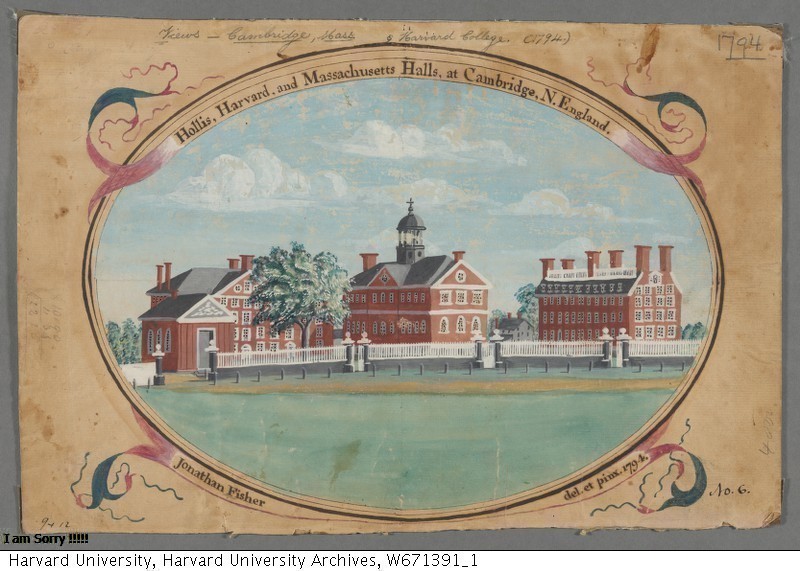 Views — Cambridge, Mass & Harvard College. (1794)
1794
Hollis, Harvard, and Massachusetts Halls, at Cambridge, N. England.
Jonathan Fisher
del. et pinx. 1794.
No. 6.
I am Sorry !!!!!
Harvard University, Harvard University Archives, W671391_1